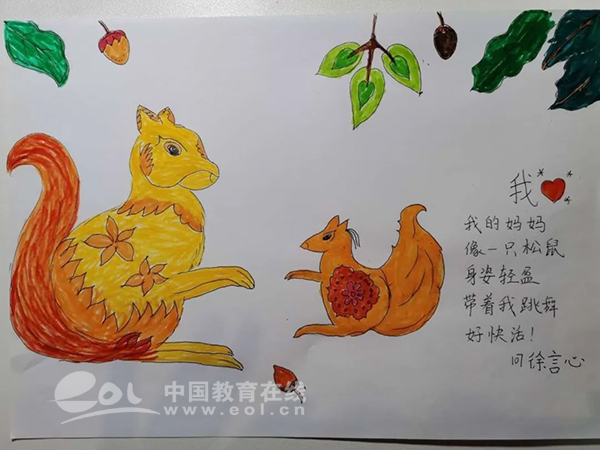 我
我的妈妈
像一只松鼠
身姿轻盈
带着我跳舞
好快活！
闫徐言心
eol 中国教育在线
www.eol.cn